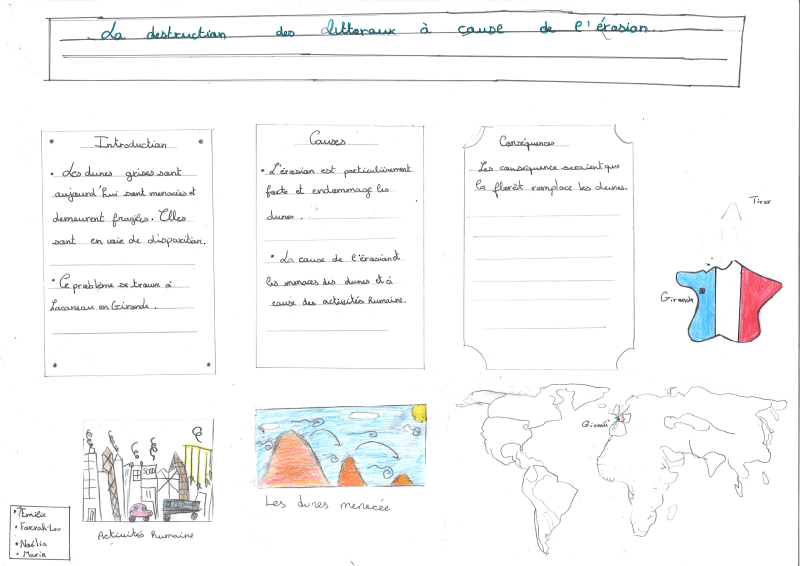 La destruction des littoraux à cause de l'érosion.
Introduction
• Les dunes grises sont
aujourd'hui sont menacées et
demeurent fragiles. Elles
sont en voie de disparition.
• Ce problème se trouve à
Lacanau en Gironde.
Causes
• L'érosion est particulièrement
forte et endommage les
dunes.
• La cause de l'érosion et
les menaces des dunes et à
cause des activités humaine.
Conséquences
Les conséquence seraient que
la florêt remplace les dunes.
Gironde
Activités humaine
Les dunes menacée
• Emilie
• Noélia
• Maria